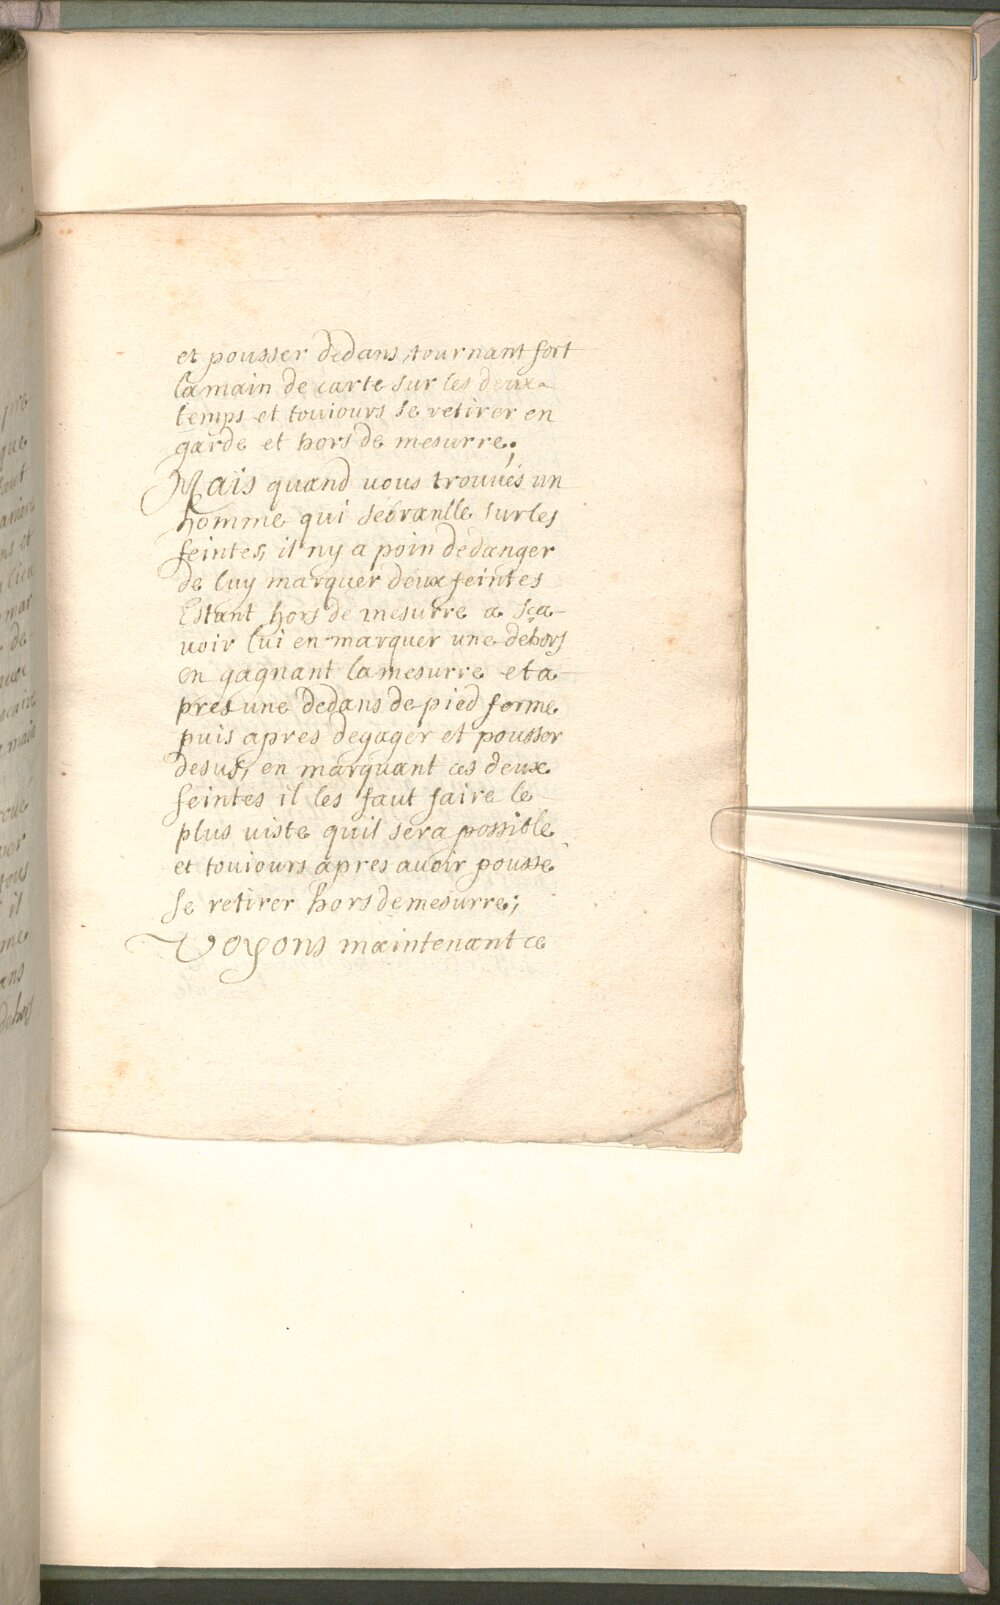 et pousser dedans, tournant fort
la main de carte sur les deux
temps et touiours se retirer en
garde et hors de mesurre.
Mais quand vous trouvés un
homme qui sébranlle sur les
feintes, il ny a poin dedanger
de luy marquer deux feintes
Estant hors de mesurre a sça-
voir lui en marquer une dehors
en gagnant la mesurre et a-
pres une dedans de pied ferme
puis apres degager et pousser
desus, en marquant ces deux
feintes il les faut faire le
plus viste quil sera possible
et touiours apres avoir poussé
se retirer hors de mesurre;
Voyons maintenant ce